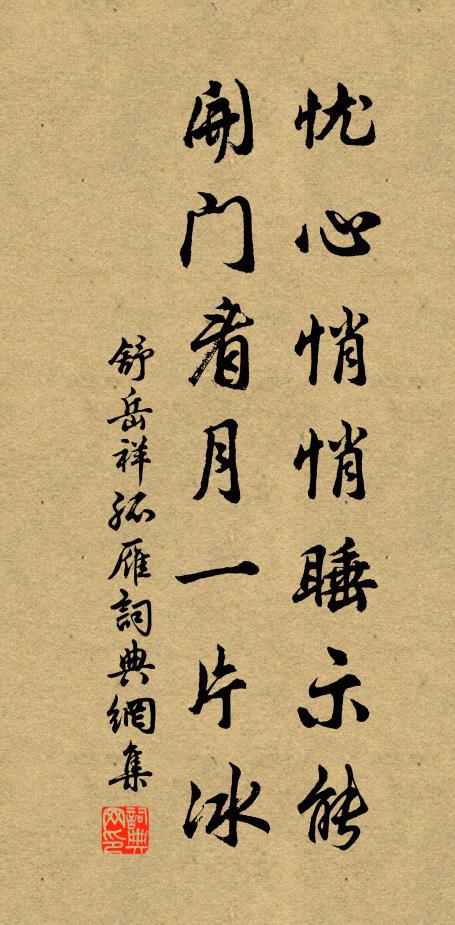 忧心悄悄睡示能
開门看月一片冰
舒岳祥孤雁詞典網集
詞典网印